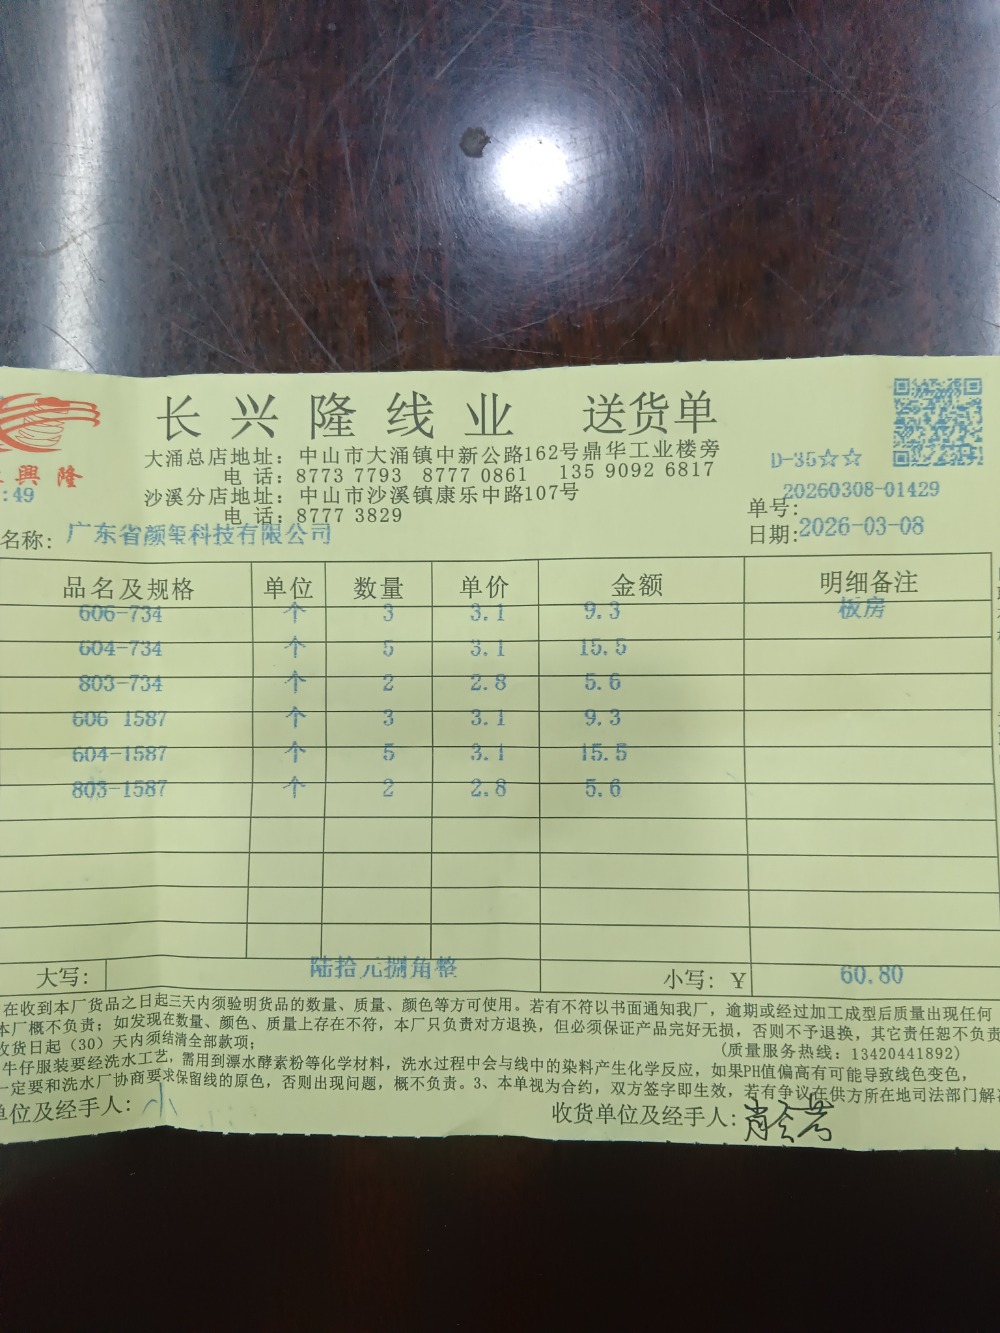 长兴隆线业 送货单
大涌总店地址：中山市大涌镇中新公路162号鼎华工业楼旁
电话：8773 7793 8777 0861 135 9092 6817
D-35☆☆
興隆
:49
沙溪分店地址：中山市沙溪镇康乐中路107号
单号：20260308-01429
电话：8777 3829
名称：广东省颜玺科技有限公司
日期：2026-03-08
品名及规格 单位 数量 单价 金额 明细备注
606-734 个 3 3.1 9.3 板房
604-734 个 5 3.1 15.5
803-734 个 2 2.8 5.6
606 1587 个 3 3.1 9.3
604-1587 个 5 3.1 15.5
803-1587 个 2 2.8 5.6
大写： 陆拾元捌角整 小写：￥ 60.80
在收到本厂货品之日起三天内须验明货品的数量、质量、颜色等方可使用。若有不符以书面通知我厂，逾期或经过加工成型后质量出现任何
本厂概不负责；如发现在数量、颜色、质量上存在不符，本厂只负责对方退换，但必须保证产品完好无损，否则不予退换，其它责任恕不负责
收货日起（30）天内须结清全部款项；
（质量服务热线：13420441892）
牛仔服装要经洗水工艺，需用到漂水酵素粉等化学材料，洗水过程中会与线中的染料产生化学反应，如果PH值偏高有可能导致线色变色，
一定要和洗水厂协商要求保留线的原色，否则出现问题，概不负责。3、本单视为合约，双方签字即生效，若有争议在供方所在地司法部门解
单位及经手人：小
收货单位及经手人：